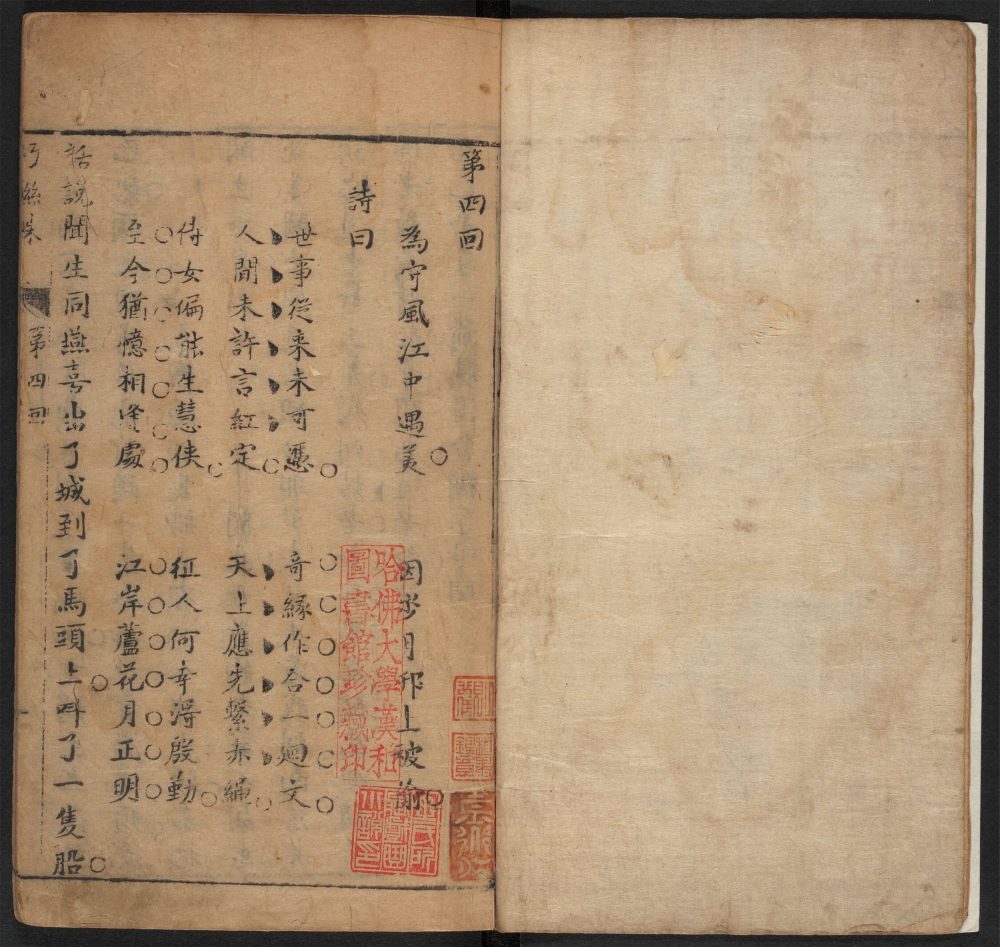 第四回
為守風江中遇美　因步月邸上被偷
詩曰
世事從來未可憑　奇緣作合一廻文
人間未許言紅定　天上應先繫赤繩
侍女偏能生慧俠　征人何幸得殷勤
至今猶憶相逢處　江岸蘆花月正明
話說聞生同燕喜出了城到了馬頭上呌了一隻船
巧絲 第四回
哈佛大學漢和
圖書館珍藏印